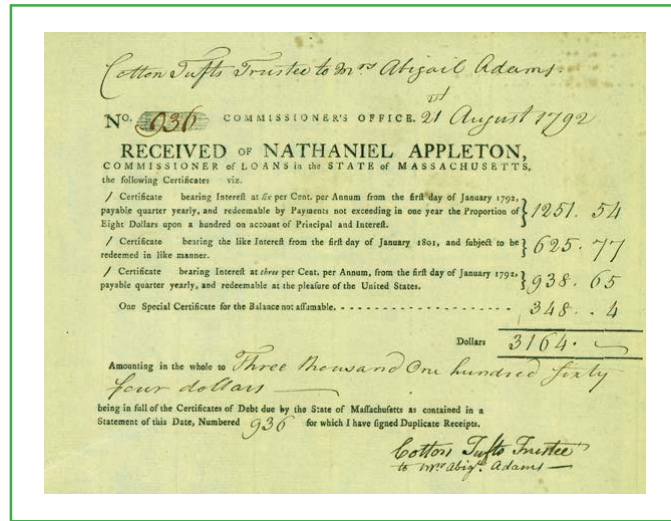 Cotton Tufts Trustee to Mrs Abigail Adams.
No. 936 COMMISSIONER'S OFFICE. 21st August 1792
RECEIVED OF NATHANIEL APPLETON,
COMMISSIONER of LOANS in the STATE of MASSACHUSETTS,
the following Certificates viz.
1 Certificate bearing Intereſt at ſix per Cent. per Annum from the firſt day of January 1792,
payable quarter yearly, and redeemable by Payments not exceeding in one year the Proportion of } 1251. 54
Eight Dollars upon a hundred on account of Principal and Intereſt.
1 Certificate bearing the like Intereſt from the firſt day of January 1801, and ſubject to be } 625. 77
redeemed in like manner.
1 Certificate bearing Intereſt at three per Cent. per Annum, from the firſt day of January 1792, } 938. 65
payable quarter yearly, and redeemable at the pleaſure of the United States.
One Special Certificate for the Balance not aſſumable. - - - - - - - - - - - - - - - - 348. . 4
Dollars 3164. —
Amounting in the whole to Three thousand One hundred sixty
four dollars —
being in full of the Certificates of Debt due by the State of Maſſachuſetts as contained in a
Statement of this Date, Numbered 936 for which I have ſigned Duplicate Receipts.
Cotton Tufts Trustee
to Mrs Abigl. Adams —